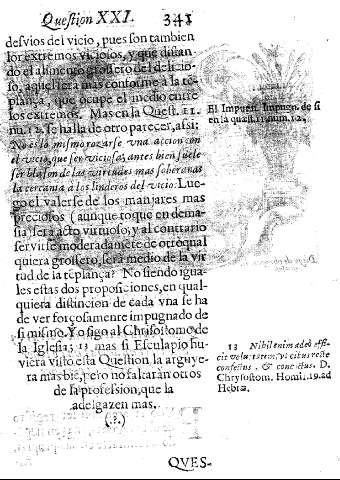 Question XXI. 341
desvios del vicio, pues son tambien
los extremos viciosos, y que distan-
do el alimento grossero del delicio-
so, aquel sera mas conforme a la tē-
plança, que ocupe el medio entre
los extremos. Mas en la Quest. 11.
nu. 12. se halla de otro parecer, assi:
No es lo mismo rozarse vna accion con
el vicio, que ser viciosa; antes bien suele
ser blason de las virtudes mas soberanas
la cercania a los linderos del vicio. Lue-
go el valerse de los manjares mas
preciosos (aunque toque en dema-
sia) será acto virtuoso, y al contrario
servirse moderadamēte de otro qual
quiera grossero, será medio de la vir
tud de la tēplança? No siendo igua-
les estas dos proposiciones, en qual-
quiera distincion de cada vna se ha
de ver forçosamente impugnado de
si mismo. Yo sigo al Chrisostomo de
la Iglesia; 13 mas si Esculapio hu-
viera visto esta Question la arguye-
ra mas biē, pero no faltarān otros
de la profession, que la
adelgazen mas.
(.?.)
El Impuen. Impugn. de si
en la quest. 11. num. 12.
13 Nihil enim adeò effi-
cit voluptatem, vt cibus recte
confectus, & concoctus. D.
Chrysostom. Homi. 19. ad
Hebræ.
QVES-